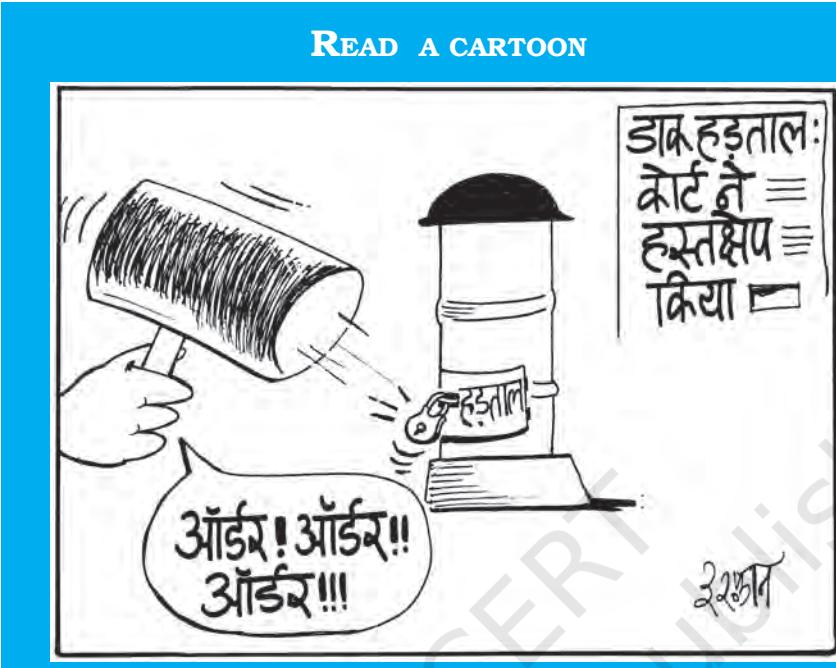 READ A CARTOON
डाक हड़ताल:
कोर्ट ने
हस्तक्षेप
किया
हड़ताल
ऑर्डर! ऑर्डर!!
ऑर्डर!!!
इरफ़ान